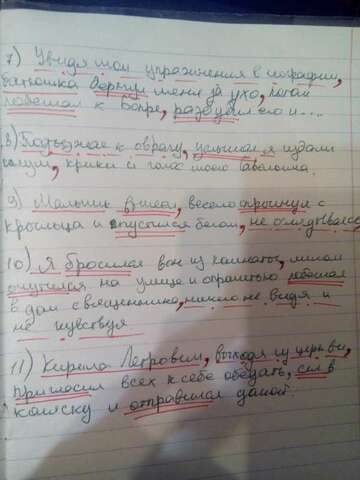 7) Увидя мои упражнения в географии,
батюшка дернул меня за ухо, потом
побежал к Бопре, разбудил его и....
8) Подъезжая к оврагу, услышал я издали
шум, крики и голос моего Савельича.
9) Мальчик вышел, весело прыгнул с
крыльца и спустился бегом, не оглядываясь
10) Я бросился вон из комнаты, мигом
очутился на улице и опрометью побежал
в дом священника, ничего не видя и
не чувствуя
11) Кирила Петрович, выходя из церкви,
пригласил всех к себе обедать, сел в
коляску и отправился домой.